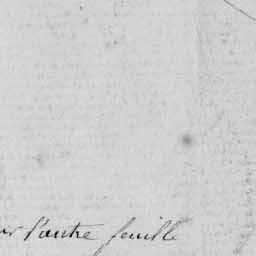 ur l'autre feuille